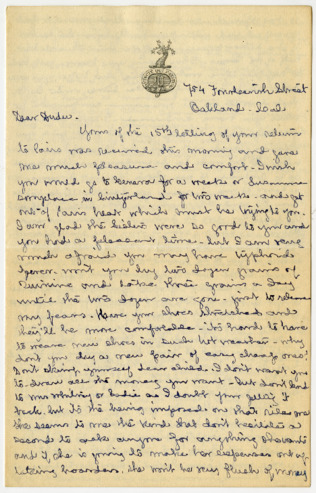 754 Fourteenth Street
Oakland - Cal
Dear Dudu.
Yours of the 15th telling of your return
to Paris was received this morning and gave
me much pleasure and comfort. I wish
you would go to Geneva for a week or Lausanne
someplace in Switzerland for two weeks - and get
out of Paris heat which must be trying to you.
I am glad the were so good to you and
you had a pleasant time - but I am very
much afraid you may have typhoid
fever. Wont you buy two dozen grains of
Quinine and take three grains a day
until the two dozen are gone - just to relieve
my fears. Have your shoes stretched and
they'll be more comfortable - its hard to have
to wear new shoes in such hot weather - why
don't you buy a new pair of easy cheap ones?
Don't skimp yourself dear child. I don't want you
to - draw all the money you want - but don't lend
to or as I doubt your getting it
back. but its the being imposed on that riles me
she seems to me the kind that don't hesitate a
second to ask anyone for anything she wants
and if she is going to make her expenses out of
taking boarders, she wont be very flush of money